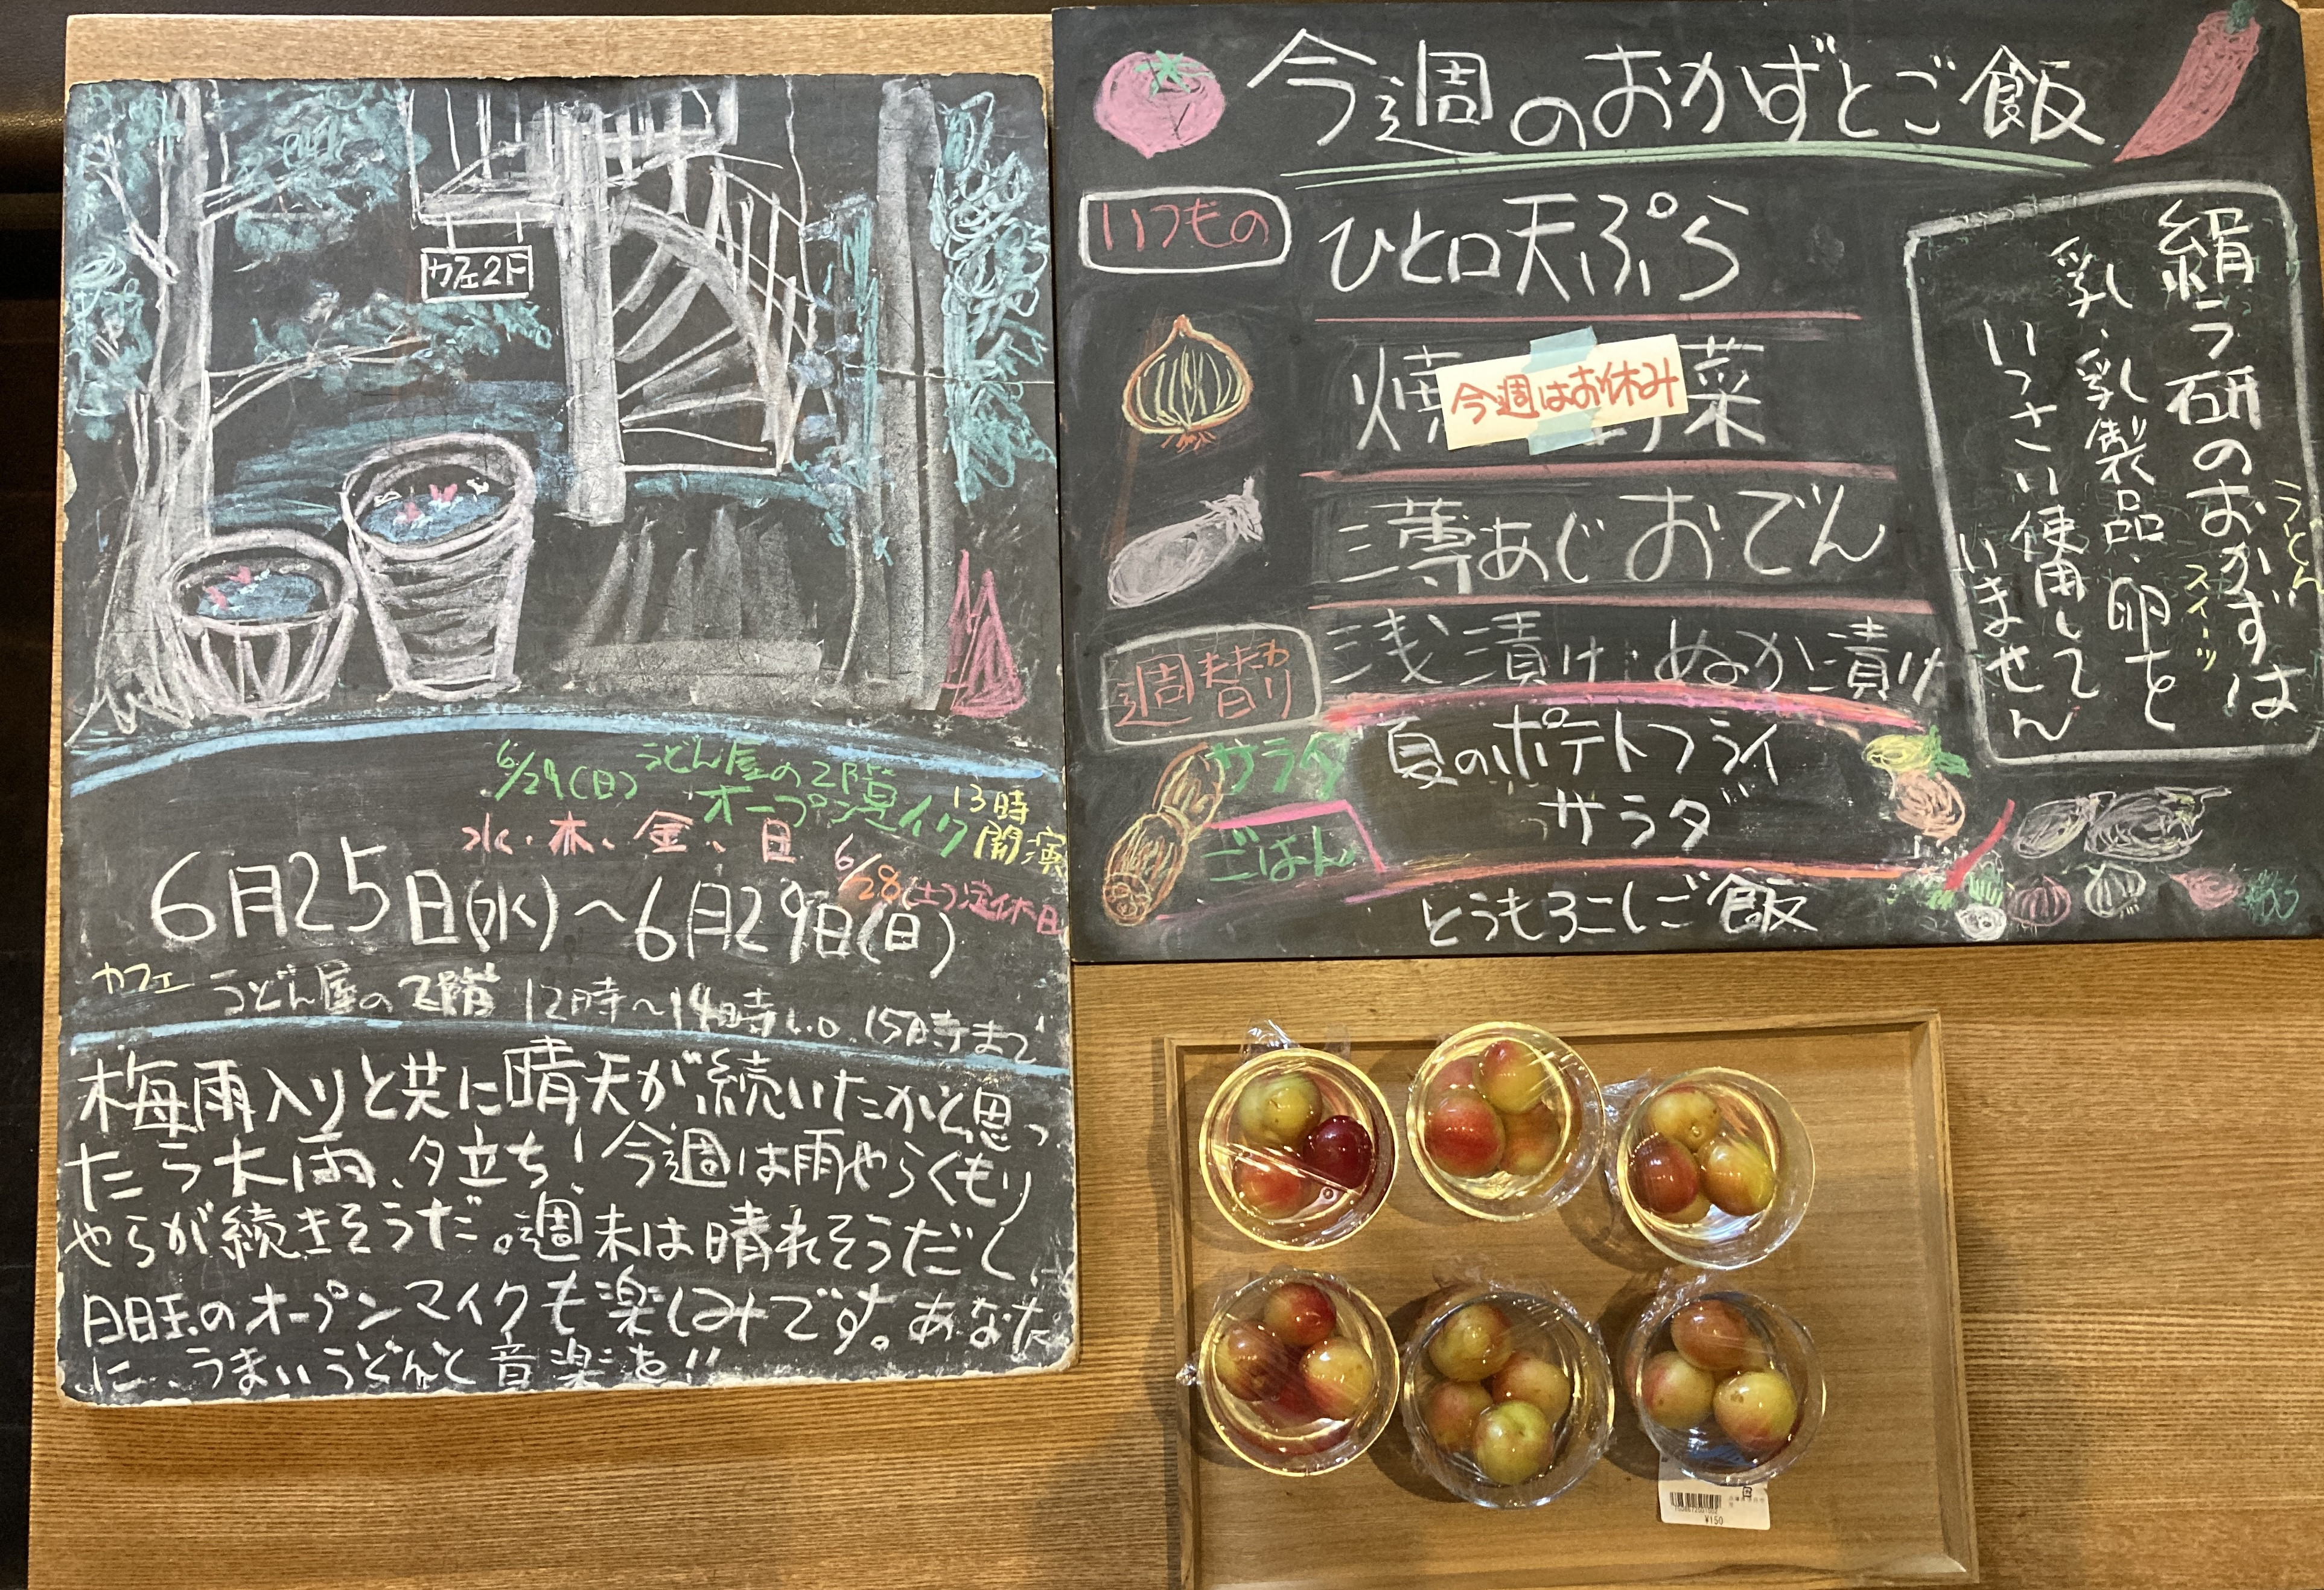 カフェ2F
6/29(日)うどん屋の2階
オープンマイク 13時
開演
水・木、金、日
6/28(土)定休日
6月25日(水)〜6月29日(日)
カフェ うどん屋の2階 12時〜14時L.O. 15時まで
梅雨入りと共に晴天が続いたかと思っ
たら大雨、夕立ち!今週は雨やらくもり
やらが続きそうだ。週末は晴れそうだし
日曜のオープンマイクも楽しみです。あなた
に、うまいうどんと音楽を!!
今週のおかずとご飯
いつもの
ひと口天ぷら
焼 菜
今週はお休み
薄あじおでん
浅漬け・ぬか漬け
週替わり
サラダ
夏のポテトフライ
サラダ
ごはん
とうもろこしご飯
絹延研のおかずは
うどん
スイーツ
乳、乳製品・卵を
いっさい使用して
いません
¥150